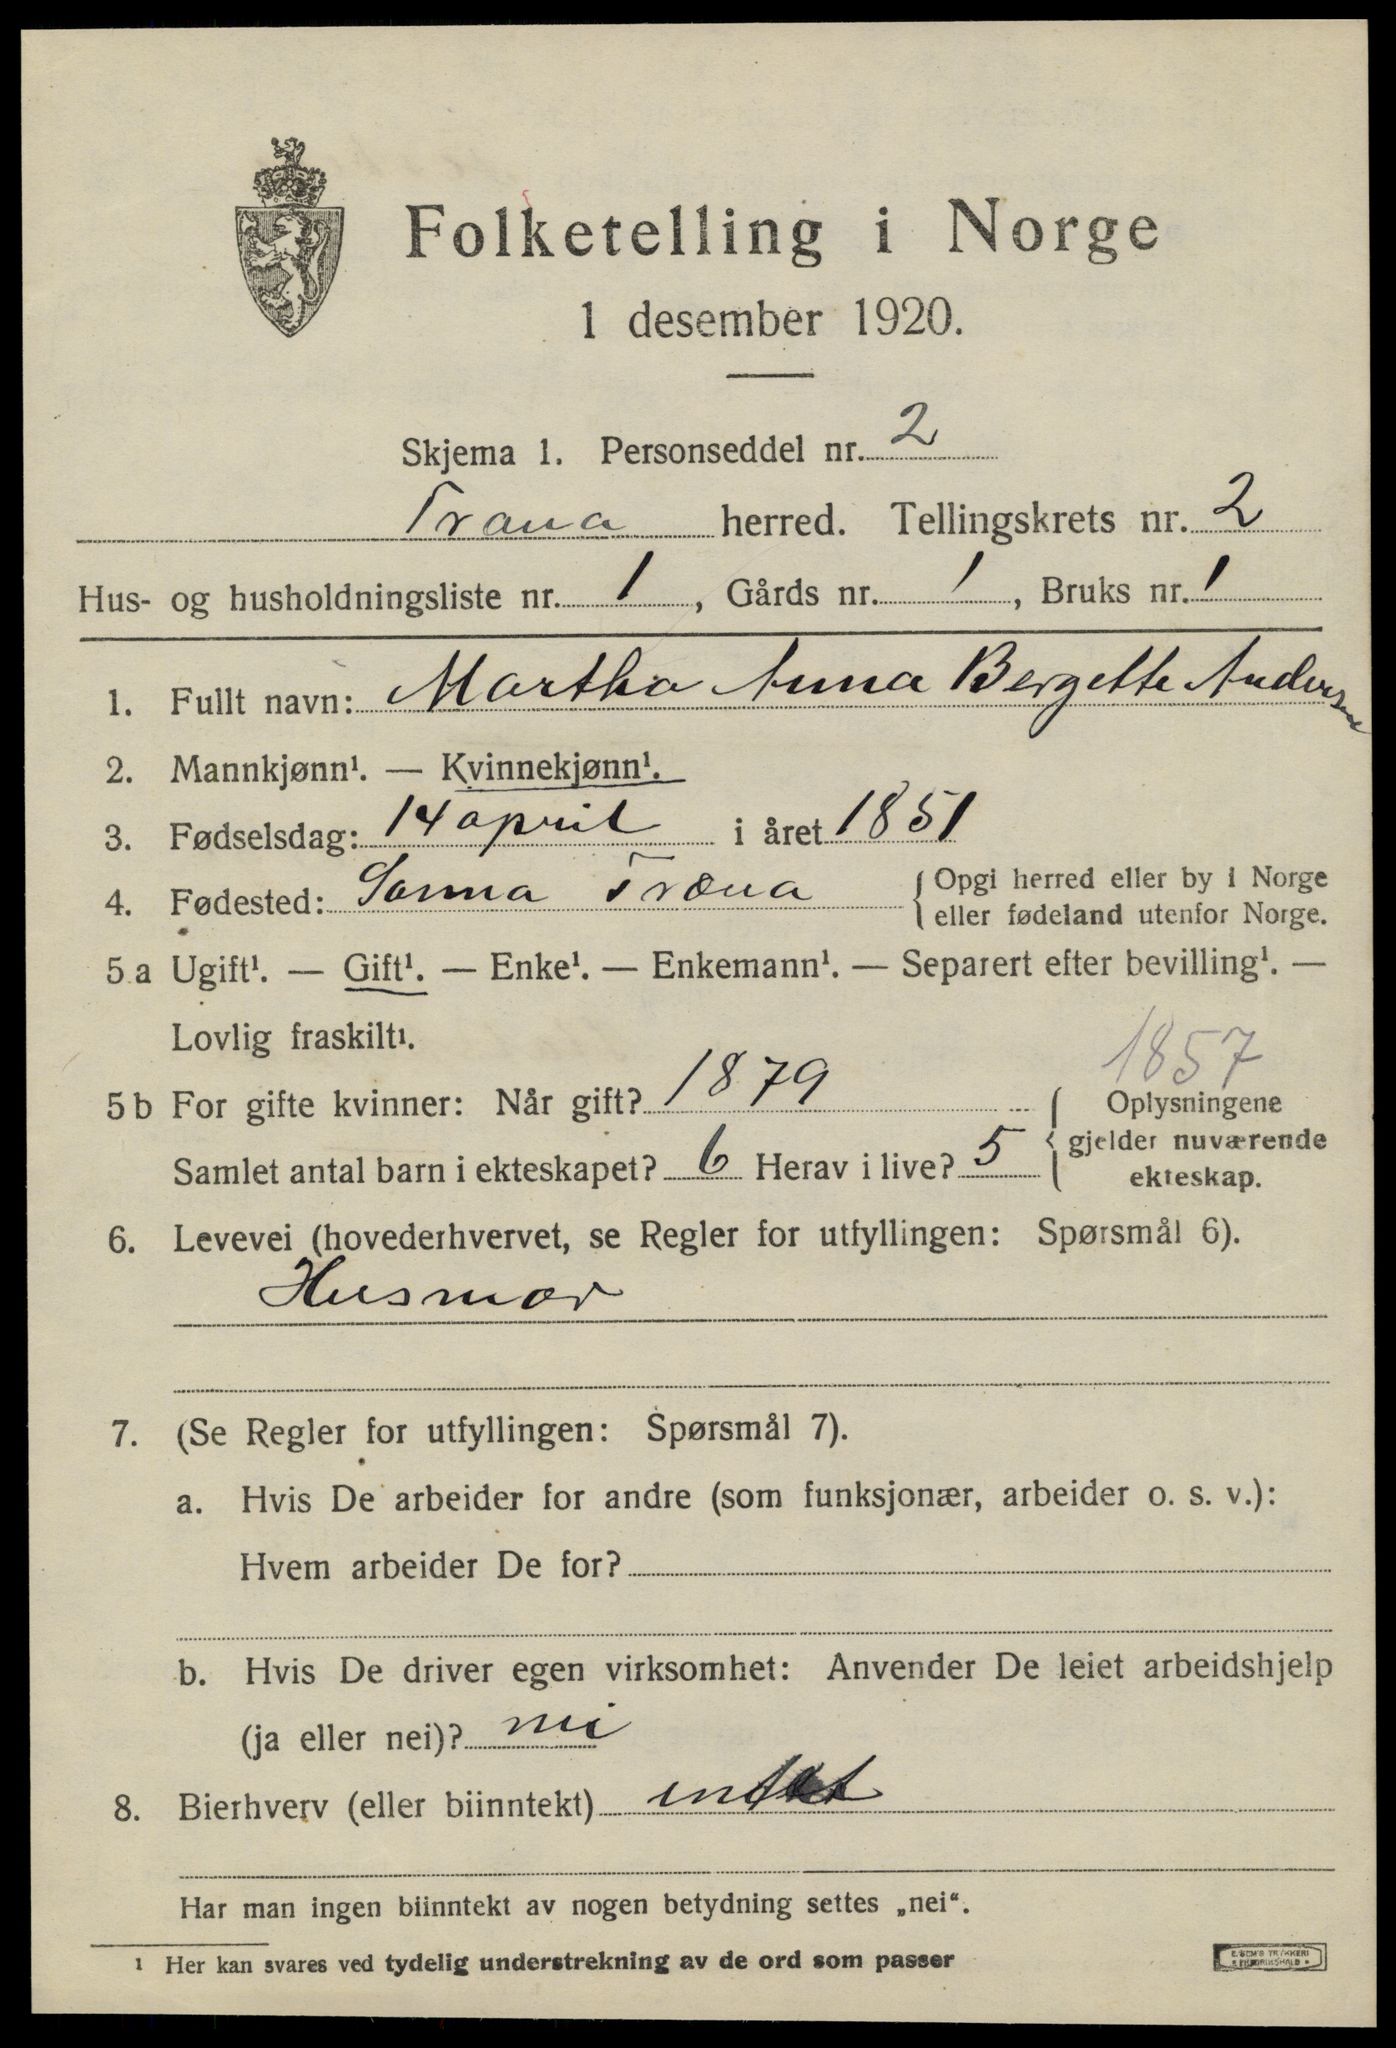 Folketelling i Norge
1 desember 1920.
Skjema 1. Personseddel nr. 2
Træna herred. Tellingskrets nr. 2
Hus- og husholdningsliste nr. 1, Gårds nr. 1, Bruks nr. 1
1. Fullt navn: Martha Anna Bergette Andersen
2. Mannkjønn¹. — Kvinnekjønn¹.
3. Fødselsdag: 14 april i året 1851
4. Fødested: Sanna Træna { Opgi herred eller by i Norge
eller fødeland utenfor Norge.
5 a Ugift¹. — Gift¹. — Enke¹. — Enkemann¹. — Separert efter bevilling¹. —
Lovlig fraskilt¹.
1857
5 b For gifte kvinner: Når gift? 1879
Samlet antal barn i ekteskapet? 6 Herav i live? 5
{ Oplysningene
gjelder nuværende
ekteskap.
6. Levevei (hovederhvervet, se Regler for utfyllingen: Spørsmål 6).
Husmor
7. (Se Regler for utfyllingen: Spørsmål 7).
a. Hvis De arbeider for andre (som funksjonær, arbeider o. s. v.):
Hvem arbeider De for?
b. Hvis De driver egen virksomhet: Anvender De leiet arbeidshjelp
(ja eller nei)? nei
8. Bierhverv (eller biinntekt) intet
Har man ingen biinntekt av nogen betydning settes „nei“.
¹ Her kan svares ved tydelig understrekning av de ord som passer
E. SEM'S TRYKKERI
FREDRIKSHALD